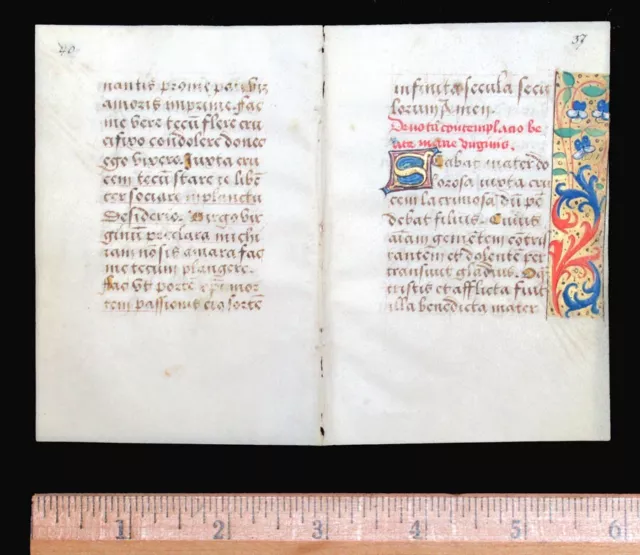 40
nantis pro me
amoris imprime. Fac
me vere tecū flere cru
cifixo condolere donec
ego vixero. Iuxta cru
cem tecū stare te libēt
ter sociare in planctu
Desiderio. Virgo vir
ginū preclara michi
iam no sis amara fac
me tecum plangere.
Fac vt portē xpi mor
tem passionis eius sortē
37
infinita secula secu
lorum Amen.
Devota contemplatio be
ate marie virginis.
Stabat mater do
lorosa iuxta cru
cem lacrimosa dū pē
debat filius. Cuius
aīam gementem cotris
tantem et dolente per
transiuit gladius. O q̄
tristis et afflicta fuit
illa benedicta mater
1 2 3 4 5 6